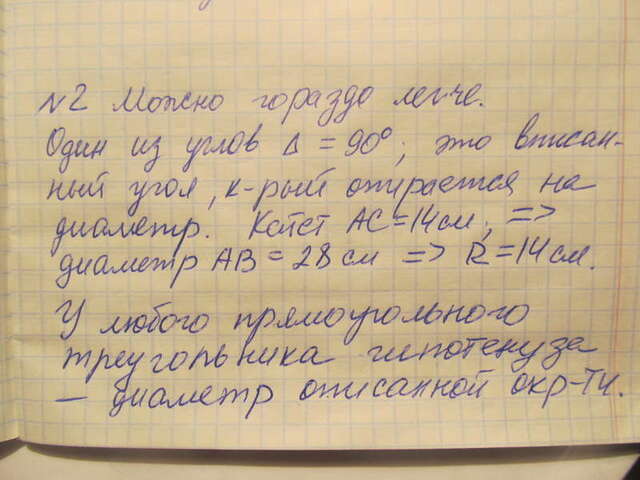 №2 Можно гораздо легче.
Один из углов Δ = 90°; это вписан-
ный угол, к-рый опирается на
диаметр. Катет AC = 14 см; =>
диаметр AB = 28 см => R = 14 см.
У любого прямоугольного
треугольника гипотенуза
— диаметр описанной окр-ти.